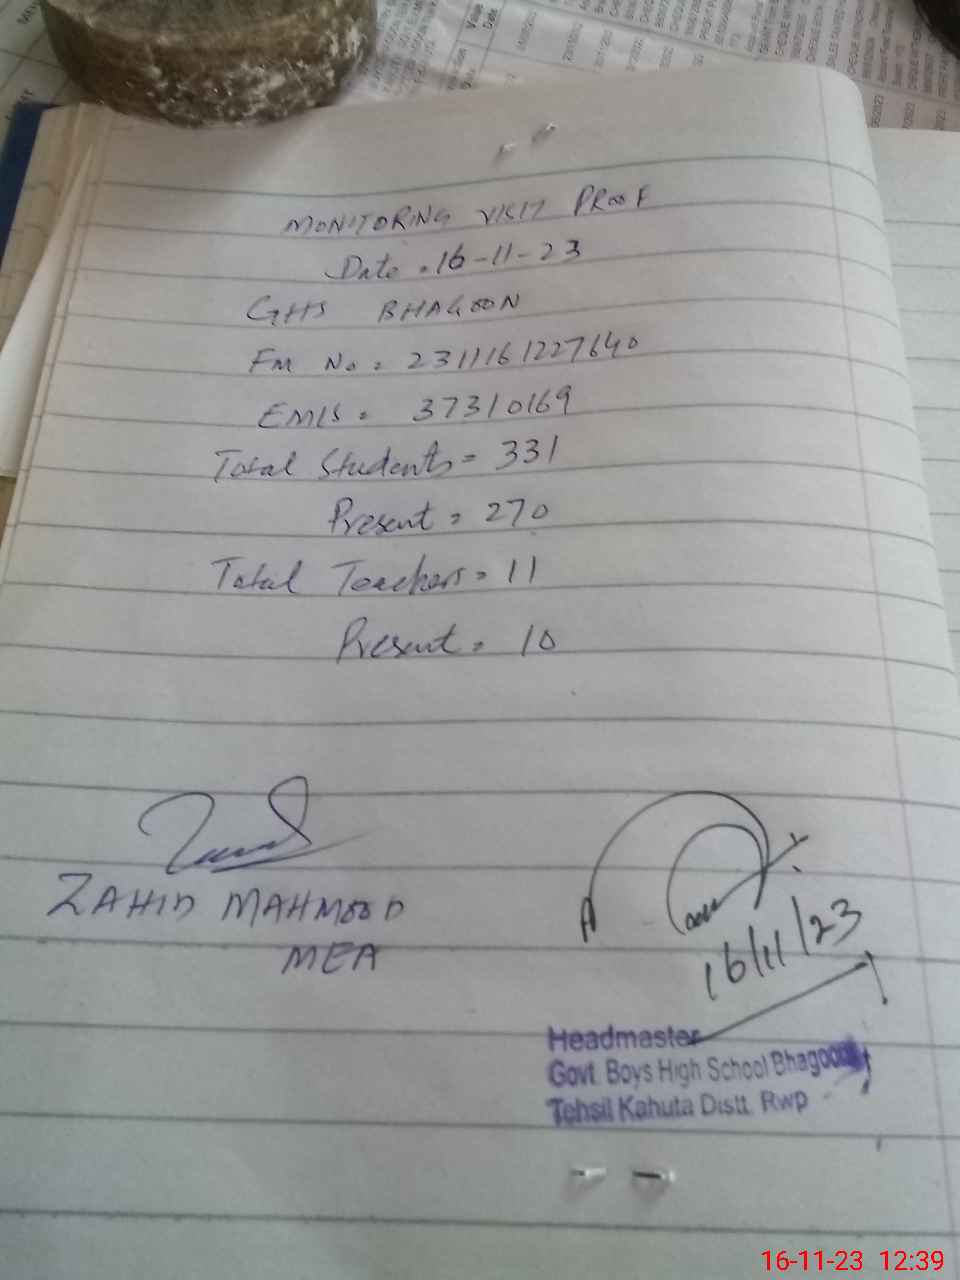 MONITORING VISIT PROOF
Date = 16-11-23
GHS BHAGOON
FM No = 2311161227640
EMIS = 37310169
Total Students = 331
Present = 270
Total Teachers = 11
Present = 10
ZAHID MAHMOOD
MEA
16/11/23
Headmaster
Govt. Boys High School Bhagoon
Tehsil Kahuta Distt. Rwp
16-11-23 12:39